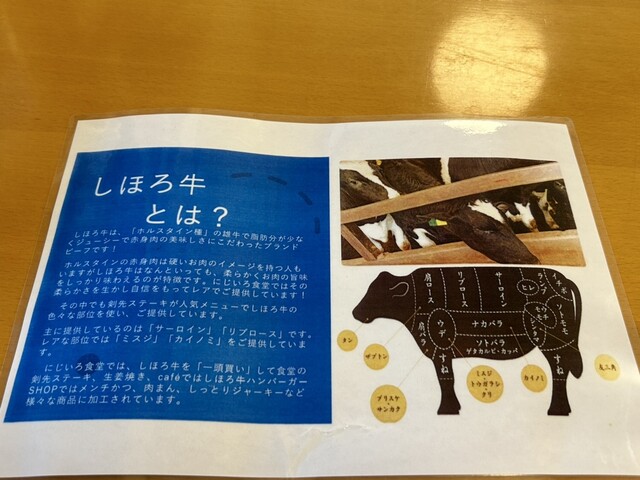 しほろ牛
とは？
しほろ牛は、「ホルスタイン種」の雄牛で脂肪分が少な
くジューシーで赤身肉の美味しさにこだわったブランド
ビーフです！
ホルスタインの赤身肉は硬いお肉のイメージを持つ人も
いますがしほろ牛はなんといっても、柔らかくお肉の旨味
をしっかり味わえるのが特徴です。にじいろ食堂ではその
柔らかさを生かし自信をもってレアでご提供しています！
その中でも剣先ステーキが人気メニューでしほろ牛の
色々な部位を使い、ご提供しています。
主に提供しているのは「サーロイン」「リブロース」です。
レアな部位では「ミスジ」「カイノミ」をご提供していま
す。
にじいろ食堂では、しほろ牛を「一頭買い」して食堂の
剣先ステーキ、生姜焼き、caféではしほろ牛ハンバーガー
SHOPではメンチかつ、肉まん、しっとりジャーキーなど
様々な商品に加工されています。
肩ロース
リブロース
サーロイン
ヒレ
ランプ
イチボ
トモモ
肩バラ
ウデ
ナカバラ
ソトバラ
ゲタカルビ・カッパ
すね
すね
タン
ザブトン
ブリスケ
サンカク
ミスジ
トウガラシ
クリ
カイノミ
友三角